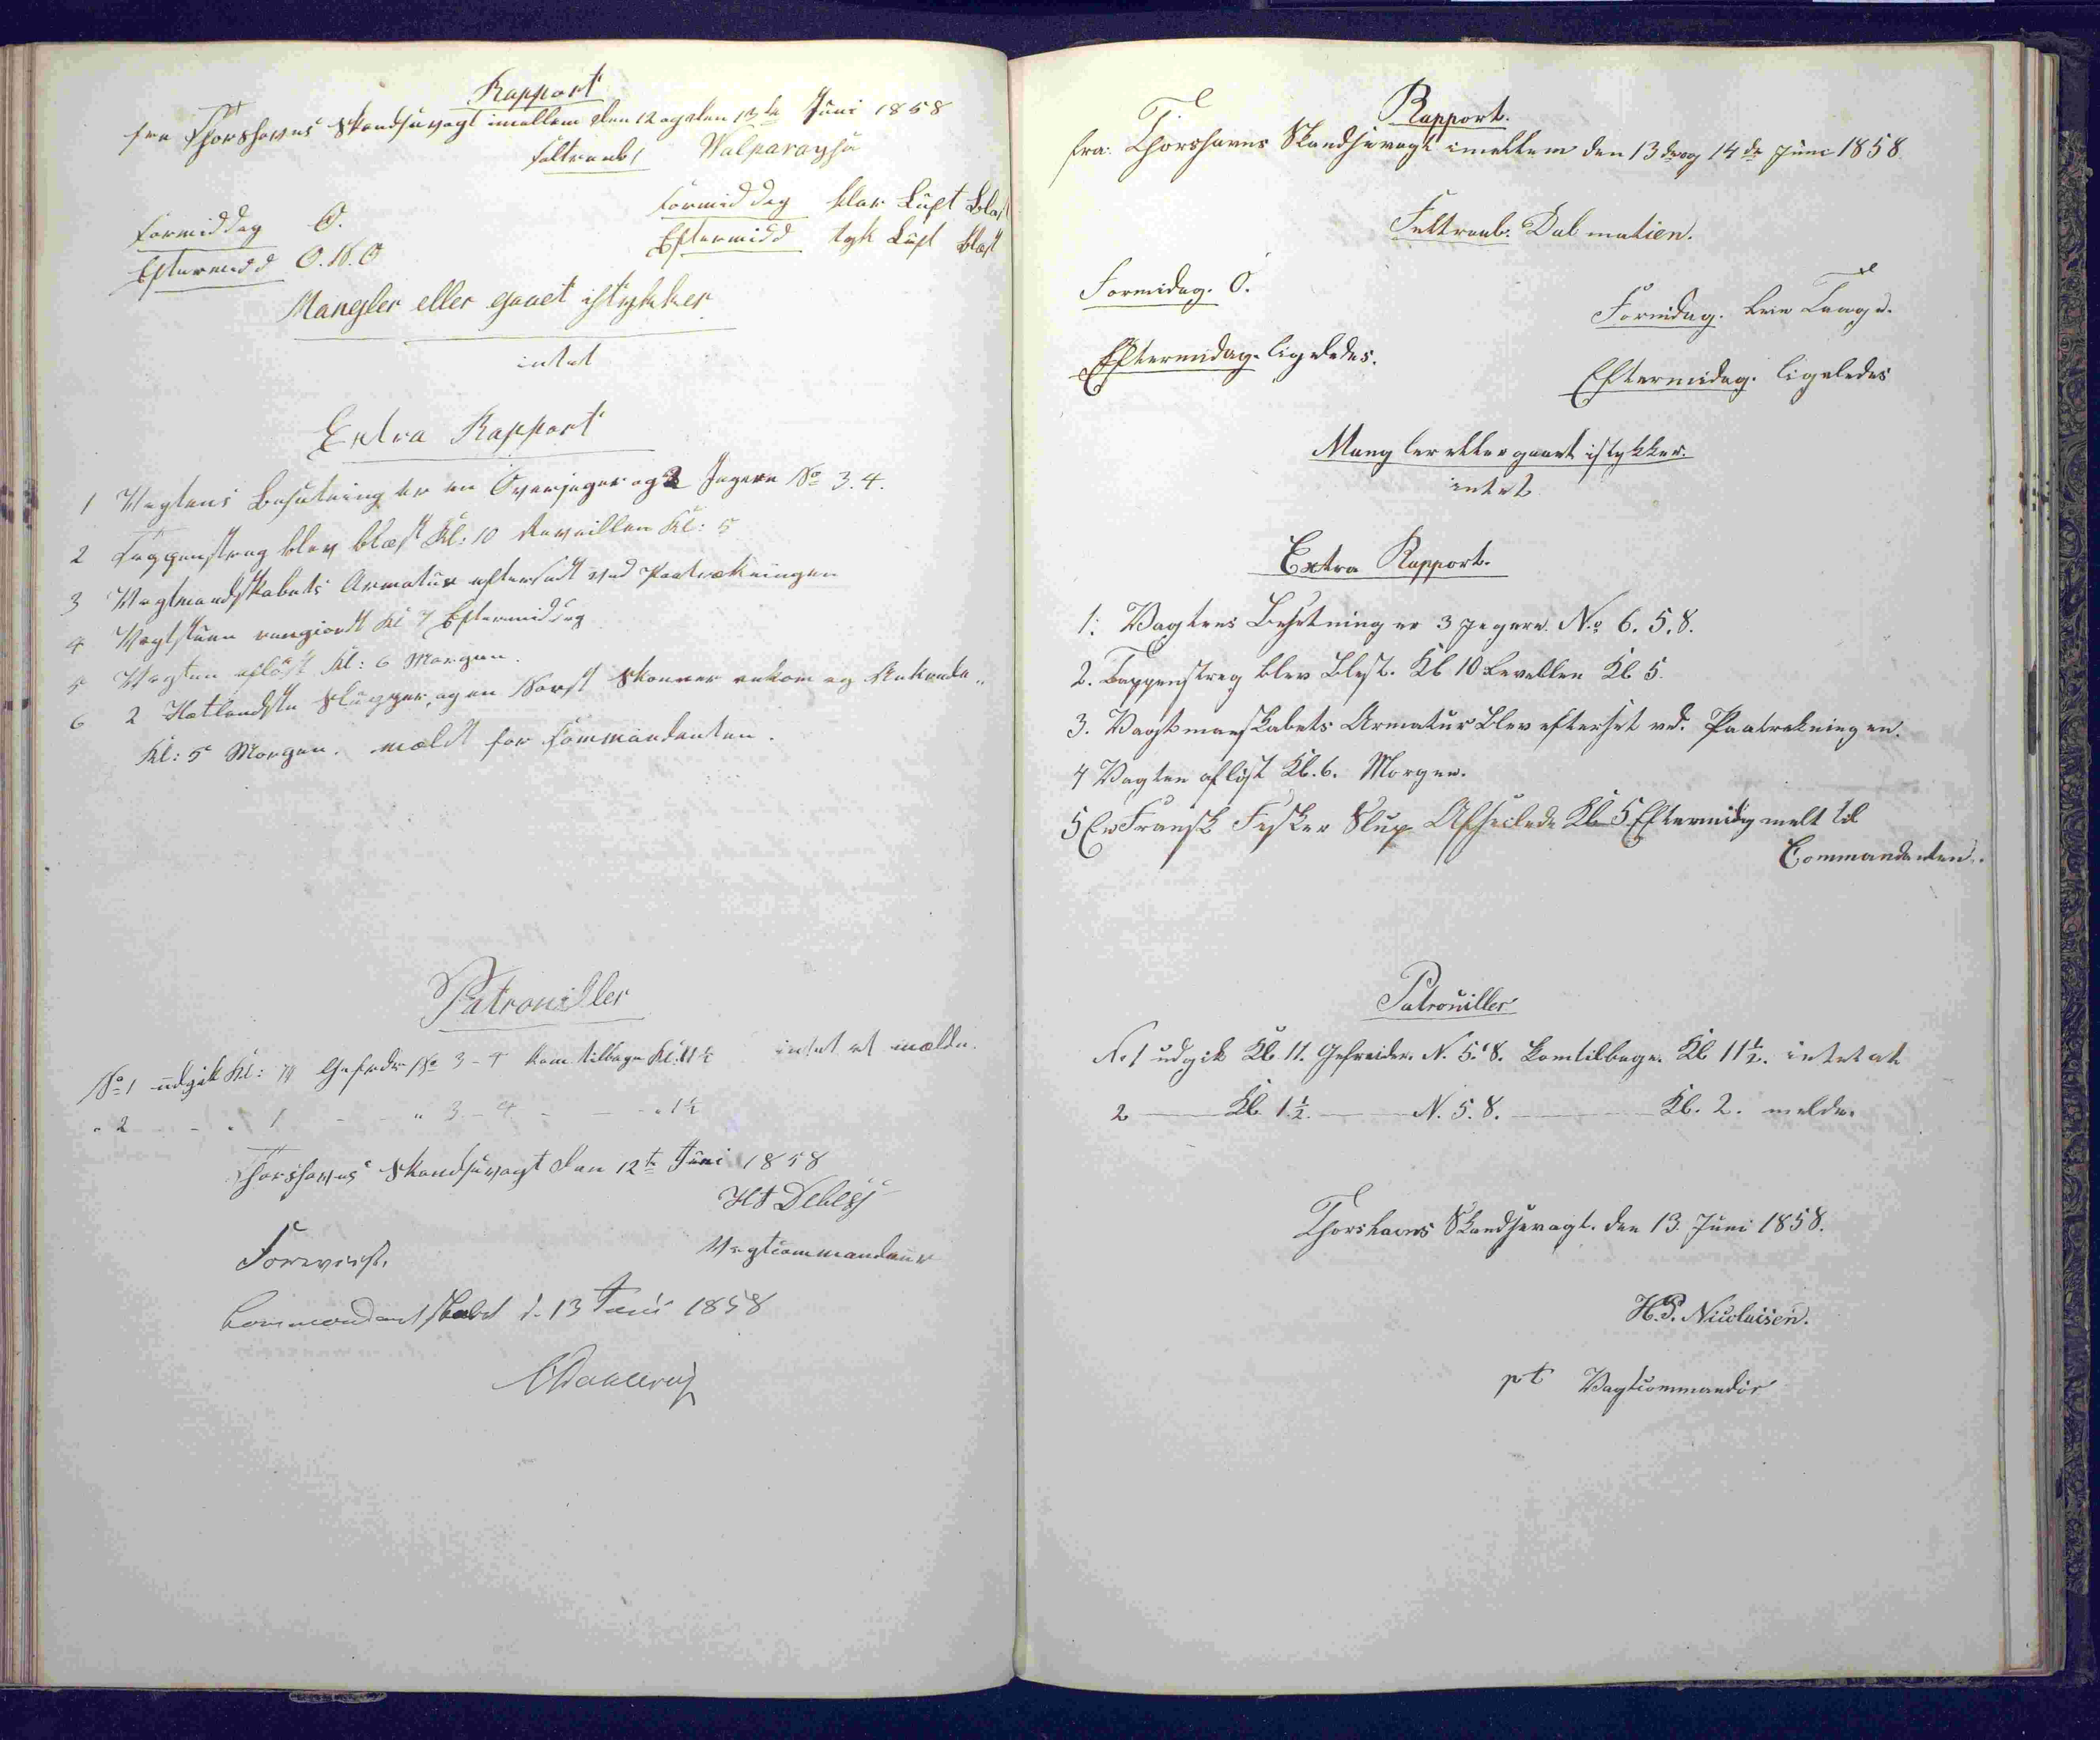 Rapport
fra Thorshavns Skandsevagt imellem den 12 og den 13de Juni 1858
Feltraab, Valparaysa
Formiddag O. Formiddag klar Luft Blæst
Eftermidd O.N.O Eftermidd tyk Luft Blæst
Mangler eller gaaet istykker
intet
Extra Rapport
1 Vagtens Besætning er en Overjæger og 2 Jægere No 3.4.
2 Tappenstreg blev blæst Kl: 10 Reveillen Kl: 5
3 Vagtmandskabets Armatur efterseet ved Paatrækningen
4 Vagtstuen rengiordt Kl 7 Eftermiddag
5 Vagten afløst Kl: 6 Morgen.
6 2 Hætlandske Slupper, og en Norsk Skonner ankom og Ankrede
Kl: 5 Morgen. meldt for Commandanten.
Patrouiller
No 1 udgik Kl: 11 Gefreder No 3-4 kom tilbage Kl: 11½ intet at melde.
" 2 - - " 1 - - " 3-4 - - - " 1½
Thorshavns Skandsevagt den 12te Juni 1858
Debess
Vagtcommandeur
Foreviist.
Commandantskabet d. 13 Juni 1858
Rapport.
fra: Thorshavns Skandsevagt imellem den 13de og 14de Juni 1858.
Feltraab. Dalmatien.
Formidag. O. Formidag. Taage.
Eftermidag. ligeledes. Eftermidag. ligeledes
Mangler eller gaaet istykker.
intet
Extra Rapport.
1. Vagtens Besetning er 3 Jegere. No 6. 5. 8.
2. Tappenstreg blev Blest. Kl 10 Revellen Kl 5.
3. Vagtmanskabets Armatur Blev efterset ved. Paatrekningen.
4 Vagten afløst Kl. 6. Morgen.
5 En Fransk Fisker Slup Afseilede Kl 5 Eftermidag melt til
Commandanten.
Patrouiller
N. 1 udgik Kl 11. Gefreider. N. 5. 8. komtilbage. Kl 11½. intet at
2 — Kl. 1½. — N. 5. 8. — Kl. 2. melde.
Thorshavns Skandsevagt. den 13. Juni 1858.
H.P. Nicolaisen.
pt Vagtcommandør